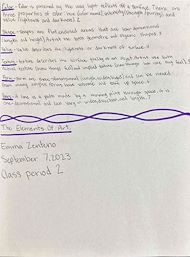 Color - Color is produced by the way light reflects off a surface. There are
three properties of color: hue (color name), intensity/strength (purity), and
value (lightness and darkness).
Shape - Shapes are flat, enclosed areas that are two-dimensional
(length and height). Artist use both geometric and organic shapes.
Value - Value describes the lightness or darkness of surface.
Texture describes the surface quality of an object. Artist use both
actual texture (how things feel) and implied texture (how things look like they feel).
Form - Forms are three-dimensional (length, width, height) and can be viewed
from many angles. Forms have volume and take up space.
Line - A line is a path made by a moving point through space. It is
one-dimensional and can vary in width, direction and length.
The Elements Of Art
Emma Zenteno
September 7, 2023
Class period 2